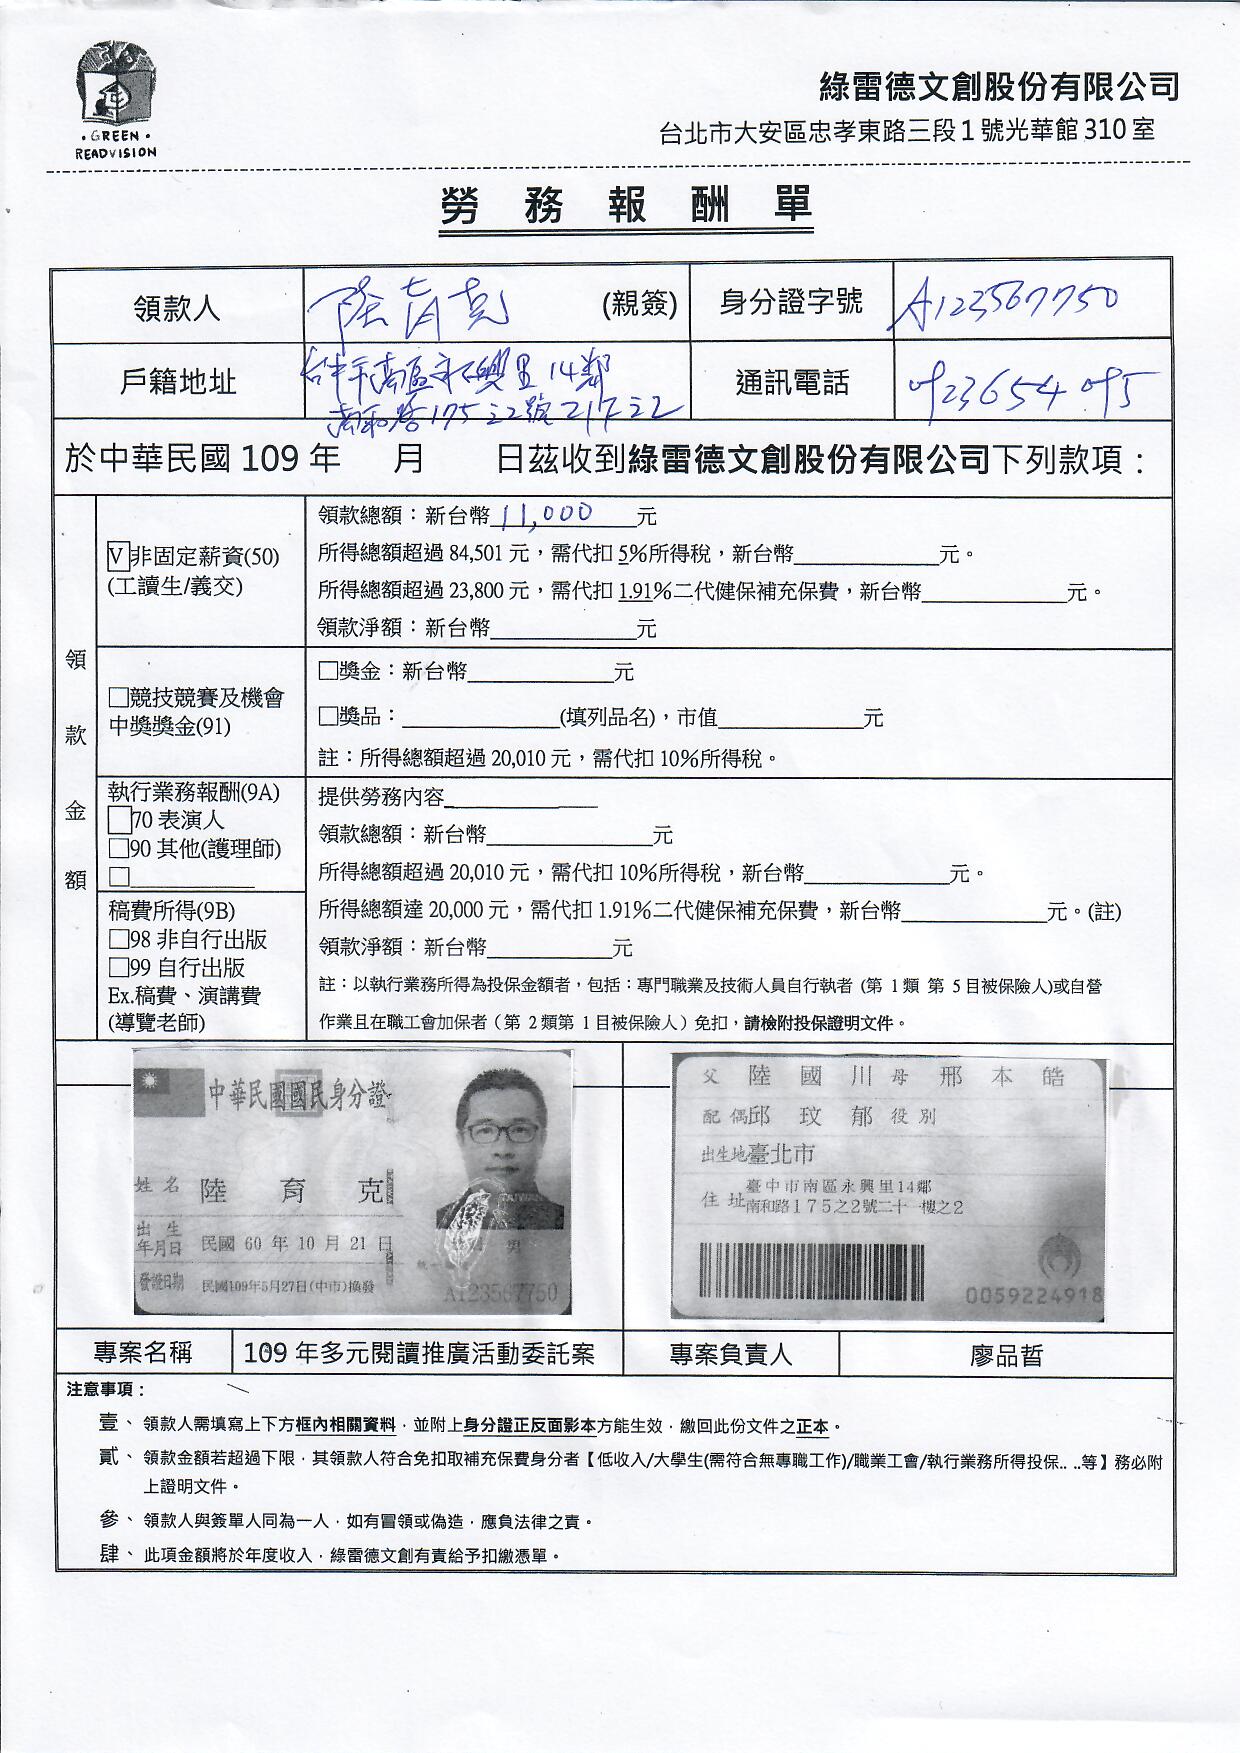 GREEN
READVISION
綠雷德文創股份有限公司
台北市大安區忠孝東路三段1號光華館310室
勞務報酬單
領款人 陸育克 (親簽) 身分證字號 A123567750
戶籍地址 台中市南區永興里14鄰
南和路175之2號21F之2
通訊電話 0923654095
於中華民國109年 月 日茲收到綠雷德文創股份有限公司下列款項：
領款金額
V非固定薪資(50)
(工讀生/義交)
領款總額：新台幣11,000元
所得總額超過84,501元，需代扣5%所得稅，新台幣__________元。
所得總額超過23,800元，需代扣1.91%二代健保補充保費，新台幣__________元。
領款淨額：新台幣__________元
□競技競賽及機會
中獎獎金(91)
□獎金：新台幣__________元
□獎品：__________(填列品名)，市值__________元
註：所得總額超過20,010元，需代扣10%所得稅。
執行業務報酬(9A)
□70 表演人
□90 其他(護理師)
□__________
稿費所得(9B)
□98 非自行出版
□99 自行出版
Ex.稿費、演講費
(導覽老師)
提供勞務內容__________
領款總額：新台幣__________元
所得總額超過20,010元，需代扣10%所得稅，新台幣__________元。
所得總額達20,000元，需代扣1.91%二代健保補充保費，新台幣__________元。(註)
領款淨額：新台幣__________元
註：以執行業務所得為投保金額者，包括：專門職業及技術人員自行執者 (第 1類 第 5目被保險人)或自營
作業且在職工會加保者（第 2類第 1目被保險人）免扣，請檢附投保證明文件。
中華民國國民身分證
姓名 陸育克
出生年月日 民國60年10月21日
男
TAIWAN
發證日期 民國109年5月27日(中市)換發
A123567750
父 陸國川 母 邢本皓
配偶 邱玟郁 役別
出生地 臺北市
住址 臺中市南區永興里14鄰
南和路175之2號二十一樓之2
0059224918
專案名稱 109年多元閱讀推廣活動委託案 專案負責人 廖品晢
注意事項：
壹、 領款人需填寫上下方框內相關資料，並附上身分證正反面影本方能生效，繳回此份文件之正本。
貳、 領款金額若超過下限，其領款人符合免扣取補充保費身分者【低收入/大學生(需符合無專職工作)/職業工會/執行業務所得投保.. ..等】務必附
上證明文件。
參、 領款人與簽單人同為一人，如有冒領或偽造，應負法律之責。
肆、 此項金額將於年度收入，綠雷德文創有責給予扣繳憑單。